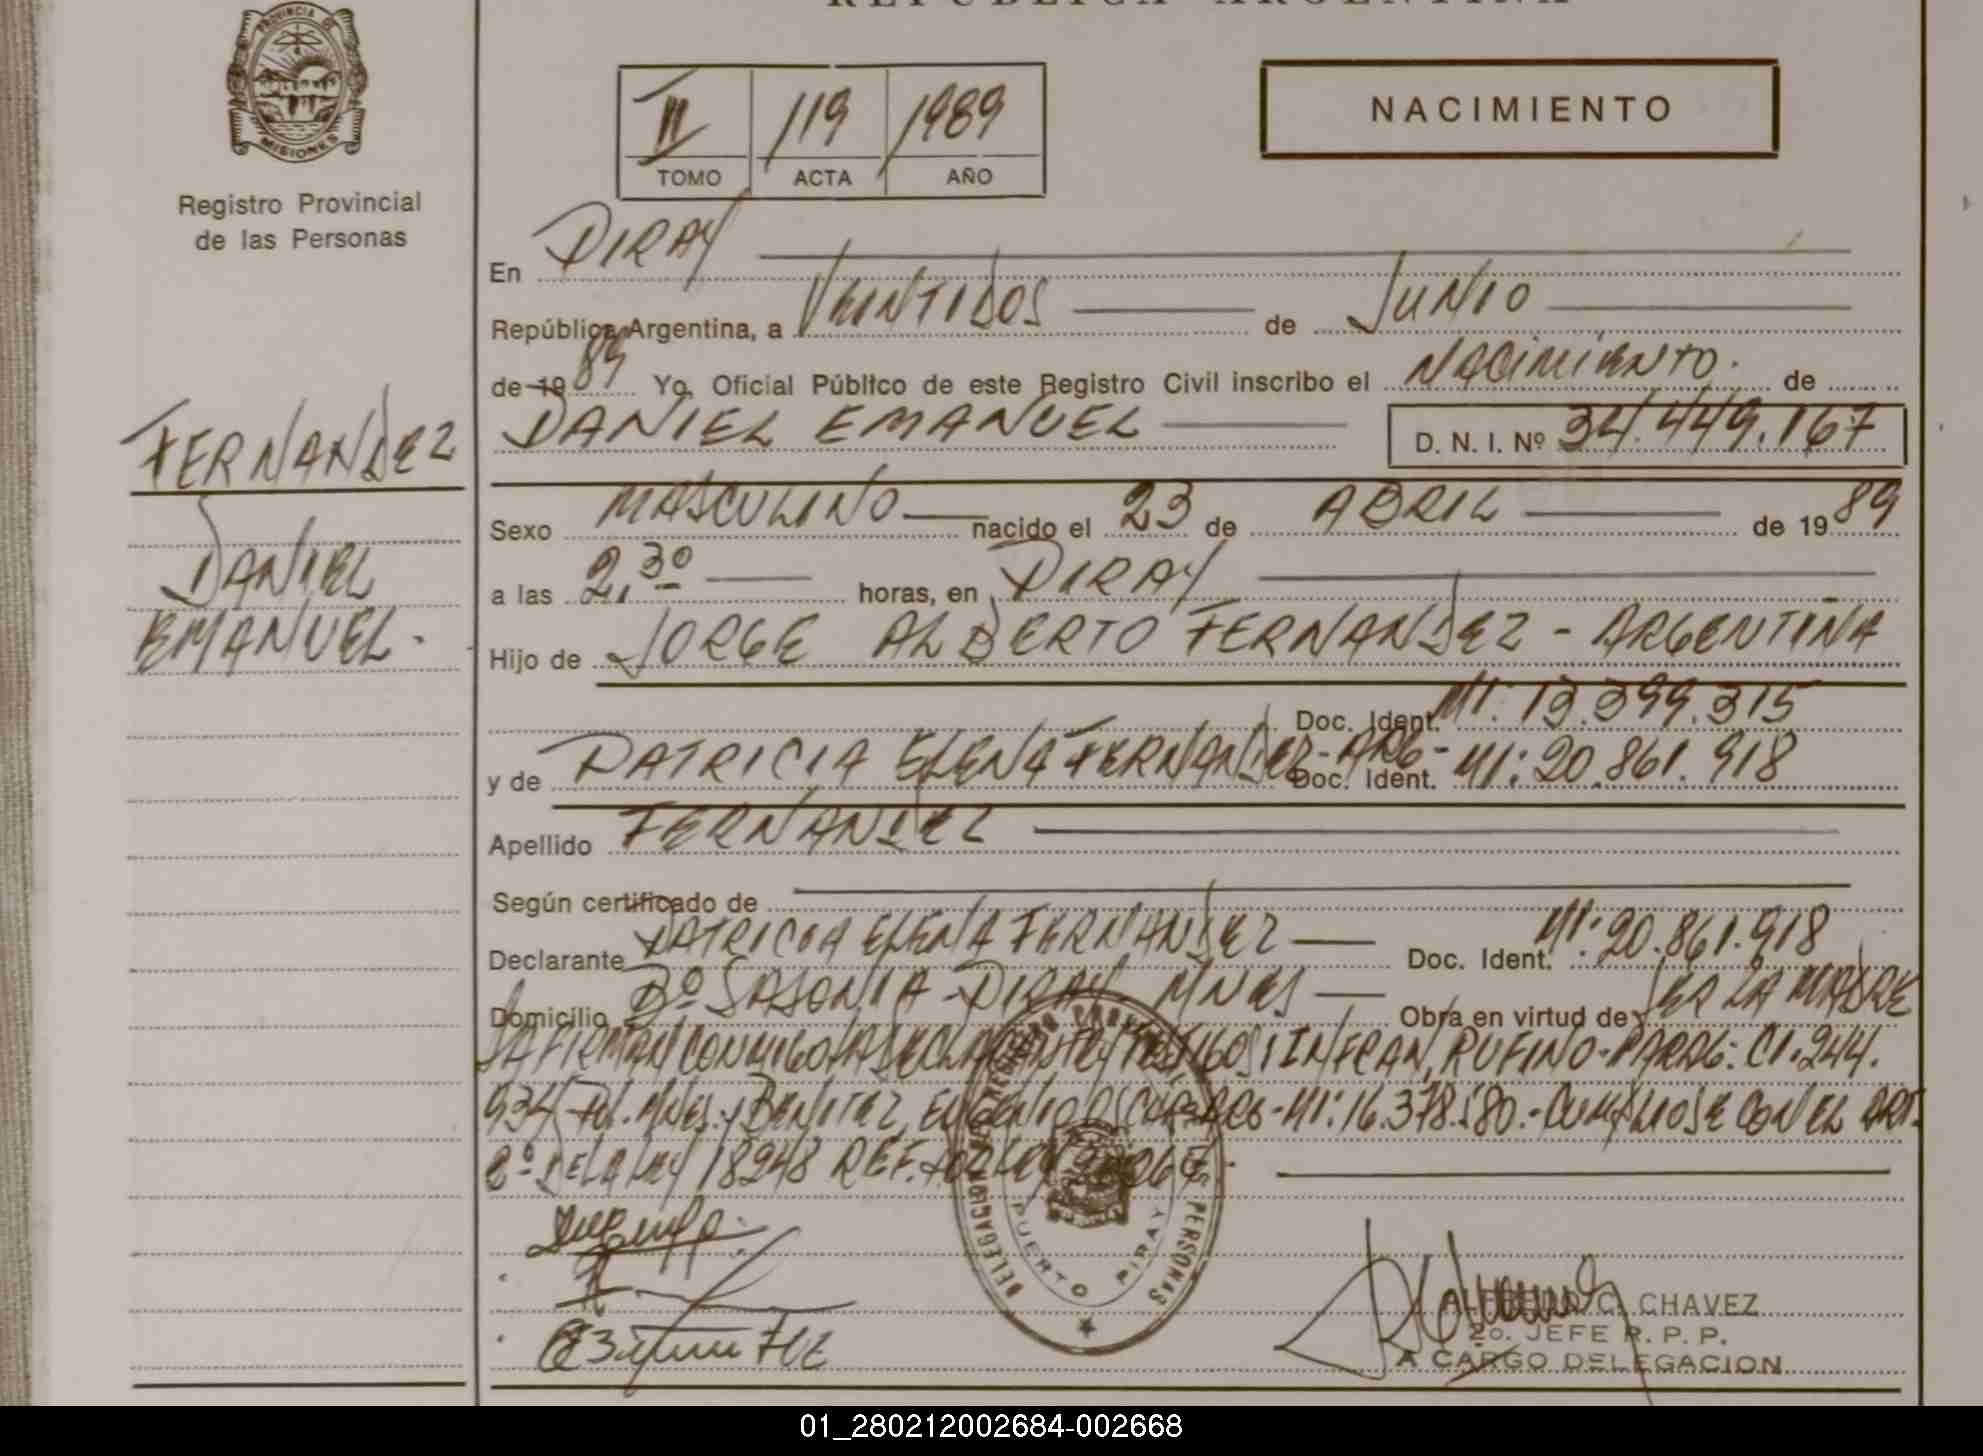 REPUBLICA ARGENTINA
PROVINCIA DE
MISIONES
Registro Provincial
de las Personas
II 119 1989
TOMO ACTA AÑO
NACIMIENTO
En PIRAY
República Argentina, a VEINTIDOS de JUNIO
de 19 89 Yo, Oficial Público de este Registro Civil inscribo el NACIMIENTO. de
FERNANDEZ
DANIEL
EMANUEL.
DANIEL EMANUEL D. N. I. Nº 34.449.167
Sexo MASCULINO nacido el 23 de ABRIL de 19 89
a las 2,30 horas, en PIRAY
Hijo de JORGE ALBERTO FERNANDEZ - ARGENTINA
Doc. Ident. MI: 13.399.315
y de PATRICIA ELENA FERNANDEZ - ARG - Doc. Ident. MI: 20.861.918
Apellido FERNANDEZ
Según certificado de
Declarante PATRICIA ELENA FERNANDEZ Doc. Ident. MI: 20.861.918
Domicilio Bº SASONIA - PIRAY MNES Obra en virtud de SER LA MADRE
FIRMAN CONMIGO LA DECLARANTE Y TESTIGOS: INFRAN, RUFINO - PARAG: CI. 244.
934 Pol. MNES. y BENITEZ, EUGENIO OSCAR ARG - MI: 16.378.580. - CUMPLIOSE CON EL ART.
2º DE LA LEY 18248 REF.
DELEGACION REGISTRO PROVINCIAL PERSONAS
PUERTO PIRAY
C. CHAVEZ
2o. JEFE R. P. P.
A CARGO DELEGACION
01_280212002684-002668